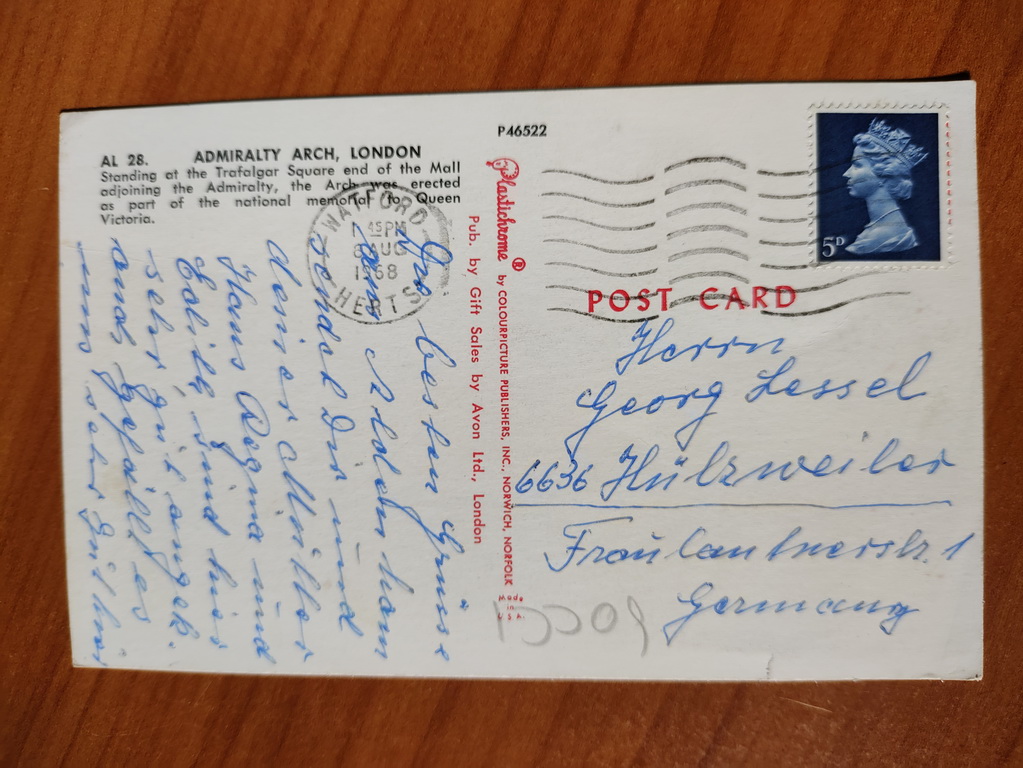 P46522
AL 28. ADMIRALTY ARCH, LONDON
Standing at the Trafalgar Square end of the Mall
adjoining the Admiralty, the Arch was erected
as part of the national memorial to Queen
Victoria.
WATFORD
45PM
8 AUG
1968
HERTS
Die besten Grüsse
aus Aldenham
sendet Dir und
deiner Mutter
Hans Regina und
Edith, sind hier
sehr gut angek.
und gefällt es
uns sehr gut hier
Plastichrome ® by COLOURPICTURE PUBLISHERS, INC., NORWICH, NORFOLK
Made
in
U.K.
Pub. by Gift Sales by Avon Ltd., London
5D
POST CARD
Herrn
Georg Lessel
6636 Hülzweiler
Fraulauternerstr. 1
Germany